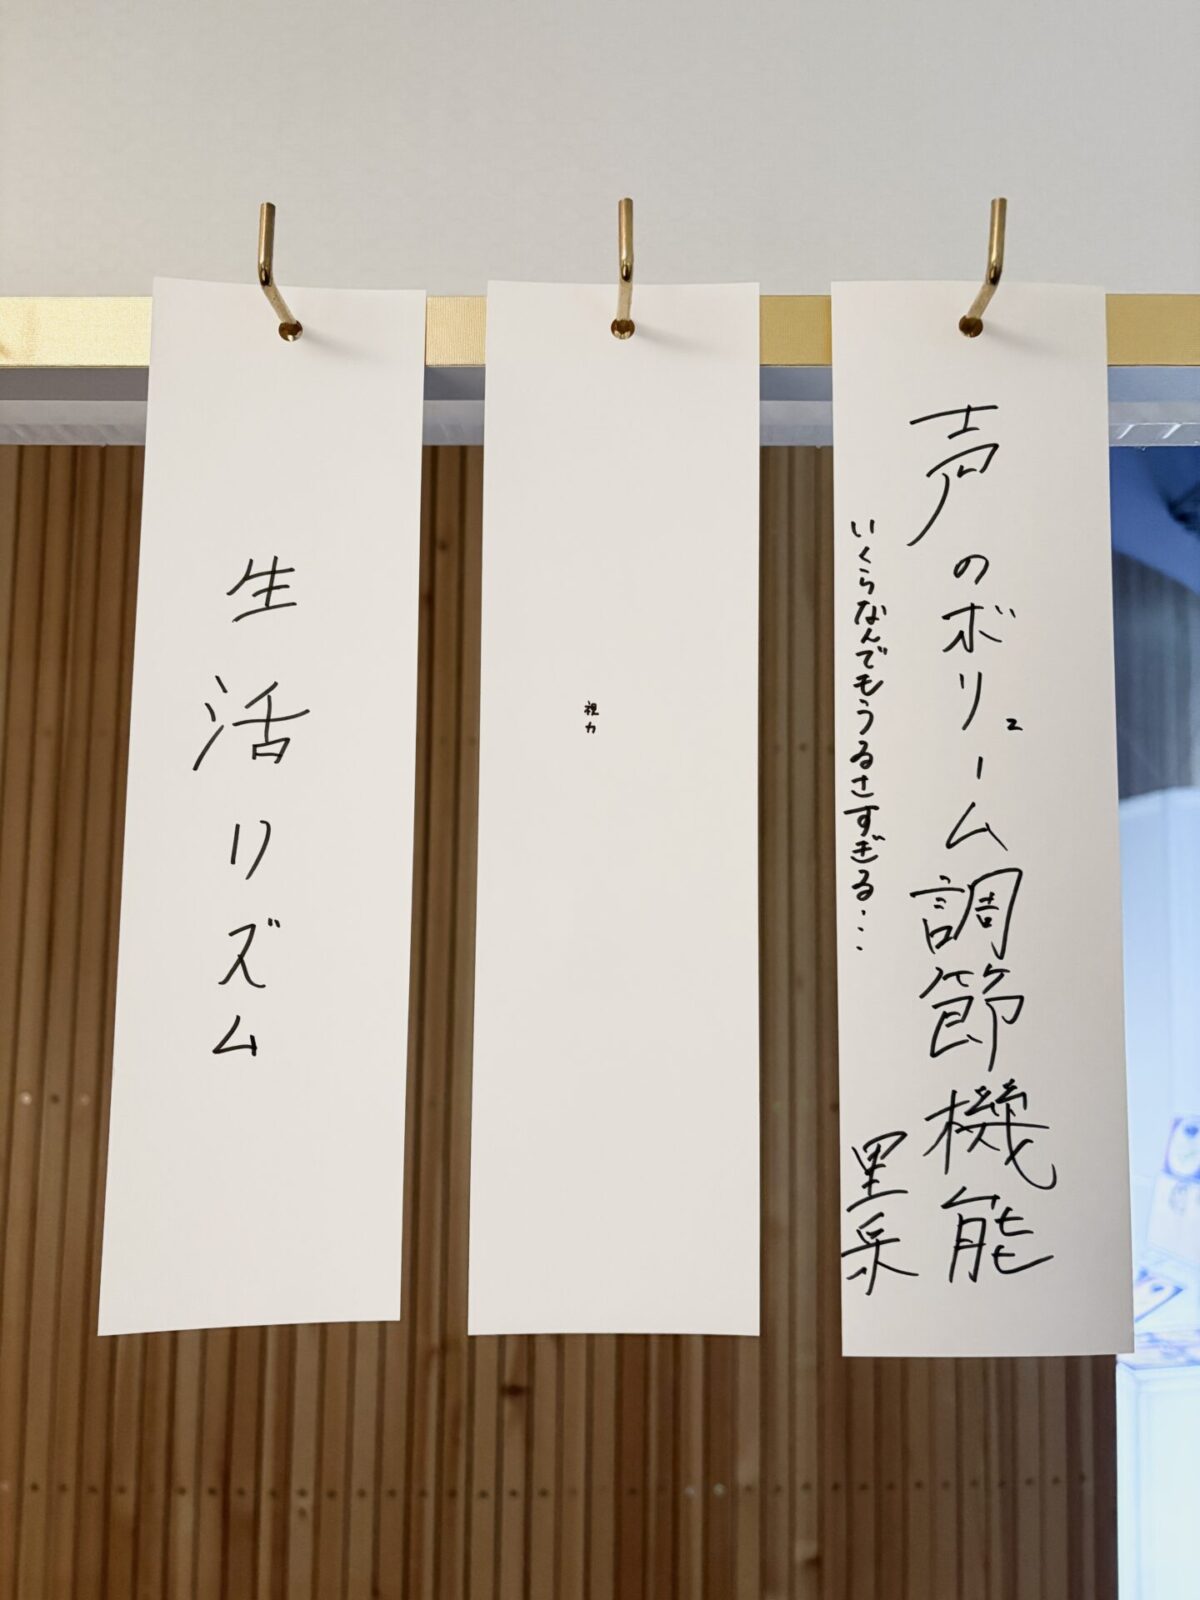 声のボリューム調節機能
いくらなんでもうるさすぎる…
里采
視力
生活リズム